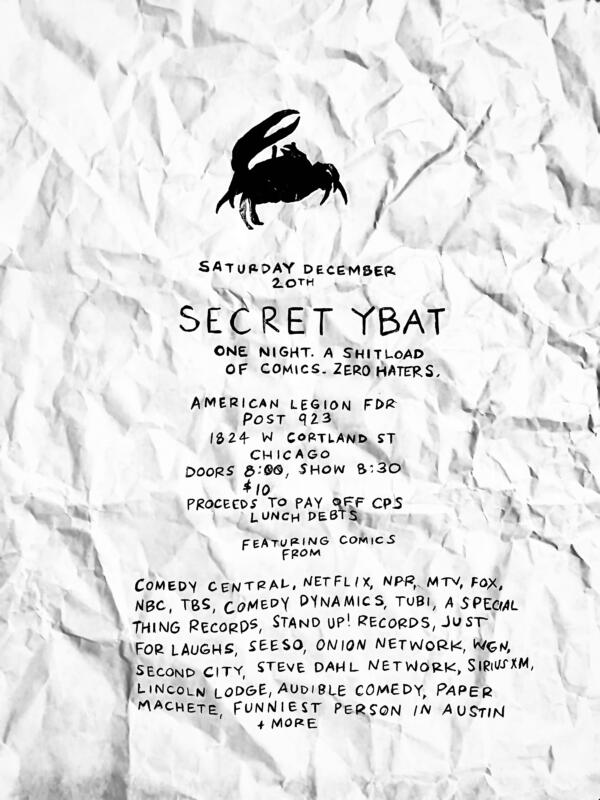 SATURDAY DECEMBER
20TH
SECRET YBAT
ONE NIGHT. A SHITLOAD
OF COMICS. ZERO HATERS.
AMERICAN LEGION FDR
POST 923
1824 W CORTLAND ST
CHICAGO
DOORS 8:00, SHOW 8:30
$10
PROCEEDS TO PAY OFF CPS
LUNCH DEBTS
FEATURING COMICS
FROM
COMEDY CENTRAL, NETFLIX, NPR, MTV, FOX,
NBC, TBS, COMEDY DYNAMICS, TUBI, A SPECIAL
THING RECORDS, STAND UP! RECORDS, JUST
FOR LAUGHS, SEESO, ONION NETWORK, WGN,
SECOND CITY, STEVE DAHL NETWORK, SIRIUSXM,
LINCOLN LODGE, AUDIBLE COMEDY, PAPER
MACHETE, FUNNIEST PERSON IN AUSTIN
+ MORE